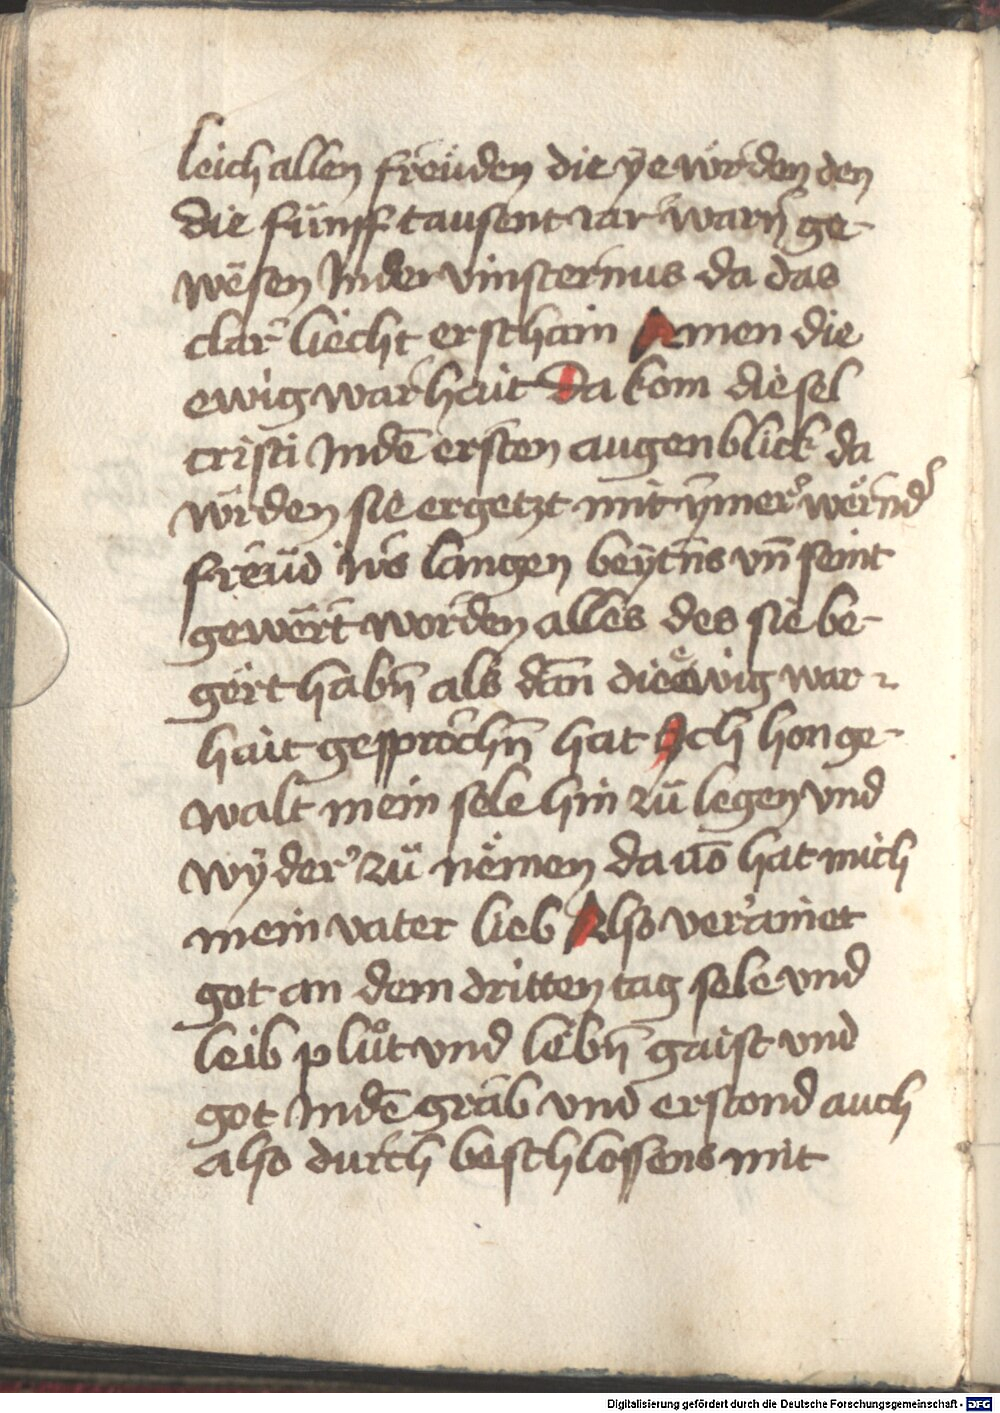 leich allen freüden die ye würden den
die fünff tausent iar warn̄ ge-
wesen Inder vinsternus da das
clar liecht erschain Amen die
ewig warhait Da kom die sel
cristi Inde͞ ersten augenblick da
würden sie ergetzt mit ym̄er wernd
freüd irs langen beytn̄s vn̄ seint
gewert worden alles des sie be-
gert habn̄ als dan̄ die ewig war-
hait gesprochn̄ hat Ich hon ge-
walt mein sele hin zü legen vnd
wÿder zü nemen da uo͞ hat mich
mein vater lieb Also verainet
got an dem dritten tag sele vnd
leib plůt vnd lebn̄ gaist vnd
got Inde͞ grab vnd erstond auch
also durch beschlossens mit
Digitalisierung gefördert durch die Deutsche Forschungsgemeinschaft - DFG